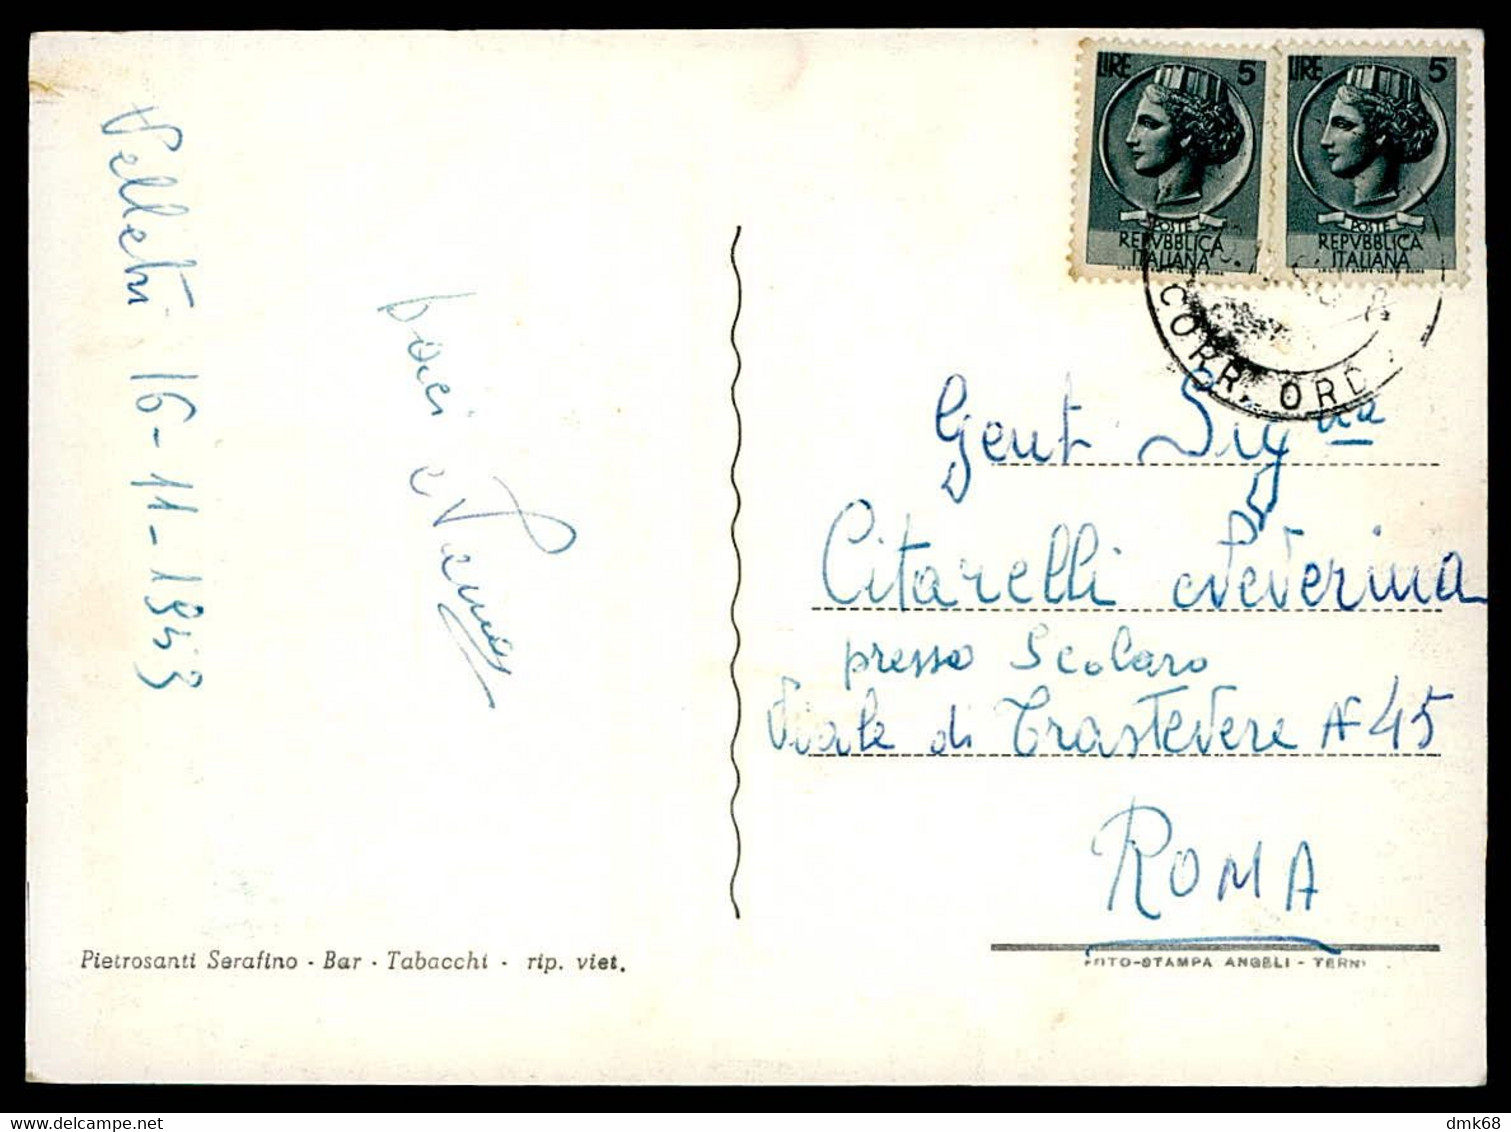 Velletri 16-11-1953
baci
LIRE 5
POSTE
REPVBBLICA
ITALIANA
LIRE 5
POSTE
REPVBBLICA
ITALIANA
CORR. ORD
Gent Sig.na
Citarelli Severina
presso Scolaro
Viale di Trastevere N 45
ROMA
Pietrosanti Serafino - Bar - Tabacchi - rip. viet.
FOTO-STAMPA ANGELI - TERNI
dmk68